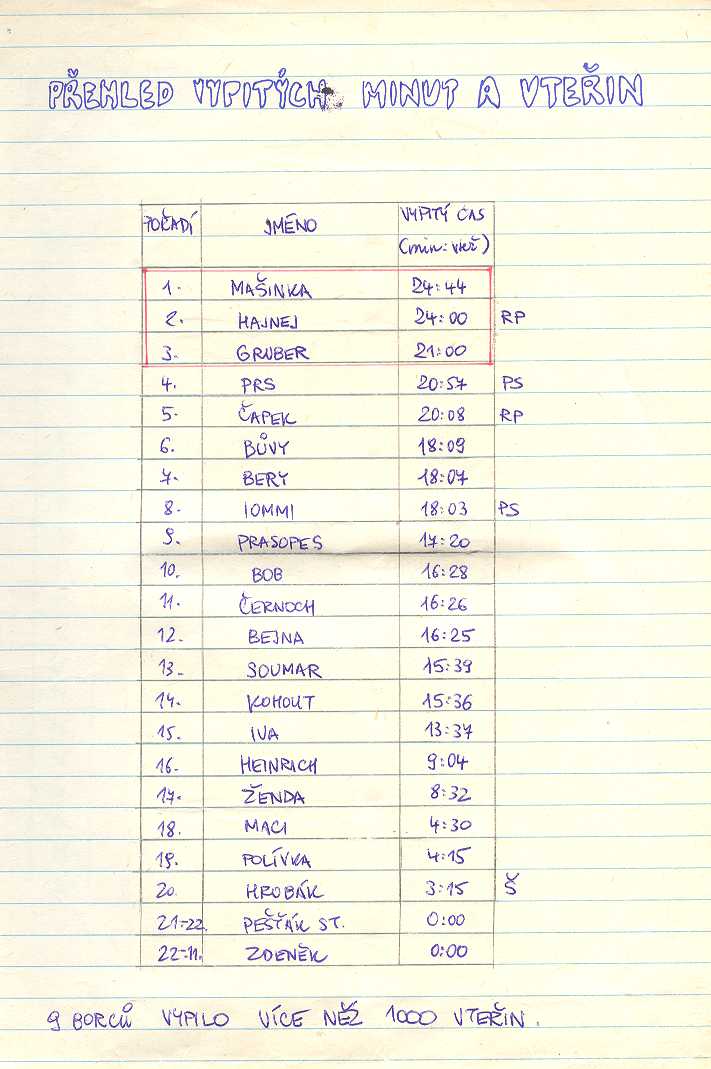 PŘEHLED VYPITÝCH MINUT A VTEŘIN
POŘADÍ JMÉNO VYPITÝ ČAS
(min:vteř)
1. MAŠINKA 24:44
2. HAJNEJ 24:00 RP
3. GRUBER 21:00
4. PRS 20:57 PS
5. ČAPEK 20:08 RP
6. BŮVY 18:09
7. BERY 18:07
8. IOMMI 18:03 PS
9. PRASOPES 17:20
10. BOB 16:28
11. ČERNOCH 16:26
12. BEJNA 16:25
13. SOUMAR 15:39
14. KOHOUT 15:36
15. IVA 13:37
16. HEINRACH 9:04
17. ŽENDA 8:32
18. MACI 4:30
19. POLÍVKA 4:15
20. HROBÁK 3:15 Š
21.-22. PEŠŤÁK ST. 0:00
22.-11. ZDENĚK 0:00
9 BORCŮ VYPILO VÍCE NĚŽ 1000 VTEŘIN.